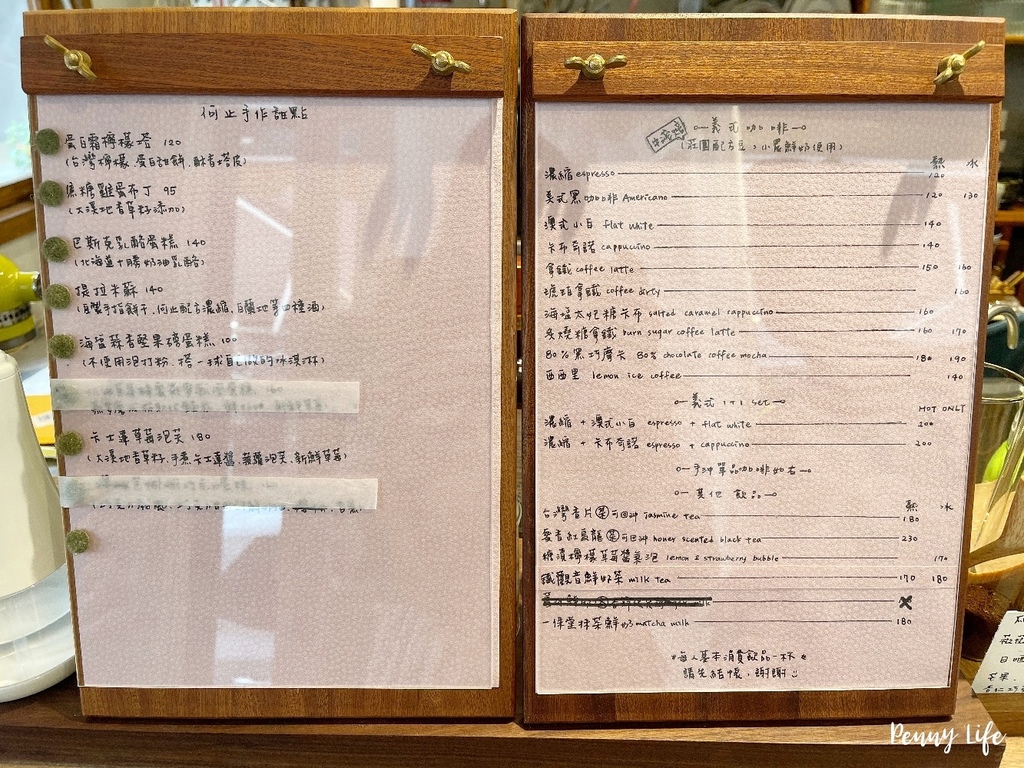 何止手作甜點
蛋白霜檸檬塔 120
(台灣檸檬、蛋白甜餅、酥香塔皮)
焦糖雞蛋布丁 95
(大溪地香草籽添加)
巴斯克乳酪蛋糕 140
(北海道十勝奶油乳酪)
提拉米蘇 140
(自製手指餅干、何止配方濃縮、白蘭地等四種酒)
海鹽蒜香堅果磅蛋糕 100
(不使用泡打粉、搭一球自己做的冰淇淋)
卡士達草莓泡芙 180
(大溪地香草籽、手煮卡士達醬、菠蘿泡芙、新鮮草莓)
義式咖啡
(莊園配方豆,小農鮮奶使用)
熱 冰
濃縮 espresso 120
美式黑咖啡 Americano 120 130
澳式小白 flat white 140
卡布奇諾 cappuccino 140
拿鐵 coffee latte 150 160
琥珀拿鐵 coffee dirty 160
海鹽太妃糖卡布 salted caramel cappuccino 160
炙燒糖拿鐵 burn sugar coffee latte 160 170
80%黑巧摩卡 80% chocolate coffee mocha 180 190
西西里 lemon ice coffee 140
義式 1+1 set
HOT ONLY
濃縮 + 澳式小白 espresso + flat white 200
濃縮 + 卡布奇諾 espresso + cappuccino 200
手沖單品咖啡如右
其他飲品
熱 冰
台灣香片 可回沖 Jasmine tea 180
蜜香紅烏龍 可回沖 honey scented black tea 230
糖漬檸檬草莓醬氣泡 lemon & strawberry bubble 170
鐵觀音鮮奶茶 milk tea 170 180
一保堂抹茶鮮奶 matcha milk 180
每人基本消費飲品一杯
請先結帳,謝謝
Penny Life